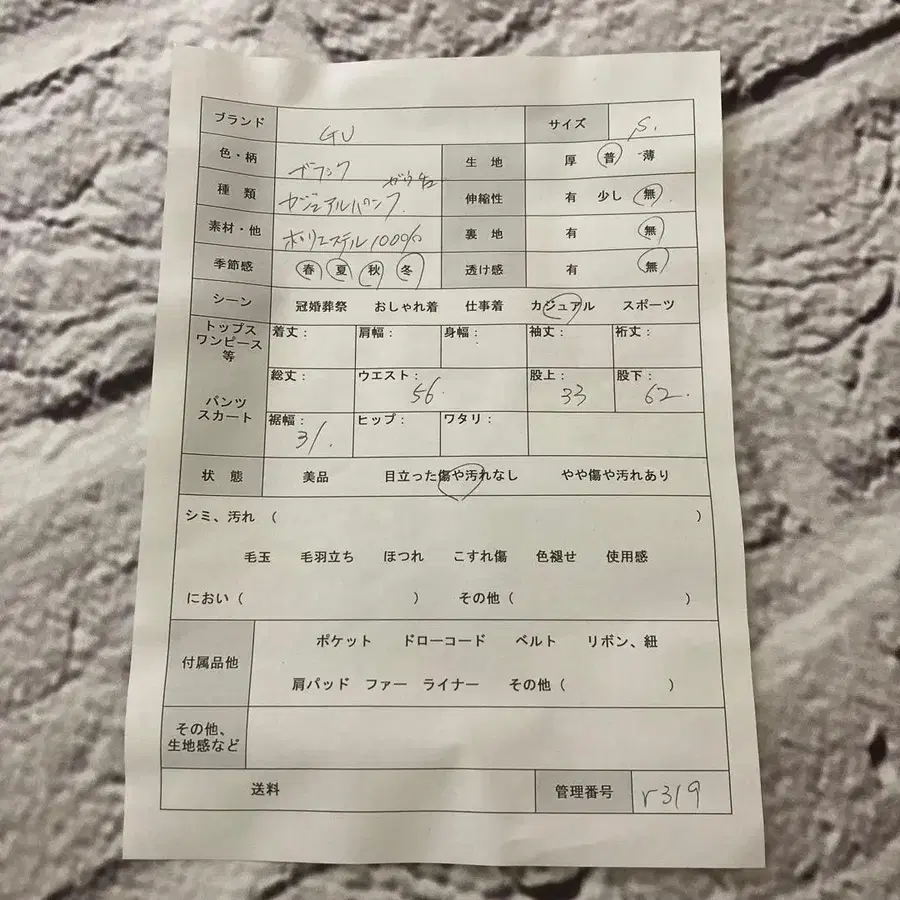 ブランド GU サイズ S.
色・柄 ブラック 生地 厚 普 薄
種類 カジュアルパンツ 伸縮性 有 少し 無
素材・他 ポリエステル100% 裏地 有 無
季節感 春 夏 秋 冬 透け感 有 無
シーン 冠婚葬祭 おしゃれ着 仕事着 カジュアル スポーツ
トップス
ワンピース
等
着丈: 肩幅: 身幅: 袖丈: 裄丈:
パンツ
スカート
総丈: ウエスト: 56. 股上: 33 股下: 62.
裾幅: 31. ヒップ: ワタリ:
状態 美品 目立った傷や汚れなし やや傷や汚れあり
シミ、汚れ ( )
毛玉 毛羽立ち ほつれ こすれ傷 色褪せ 使用感
におい ( ) その他 ( )
付属品他 ポケット ドローコード ベルト リボン、紐
肩パッド ファー ライナー その他 ( )
その他、
生地感など
送料 管理番号 r319